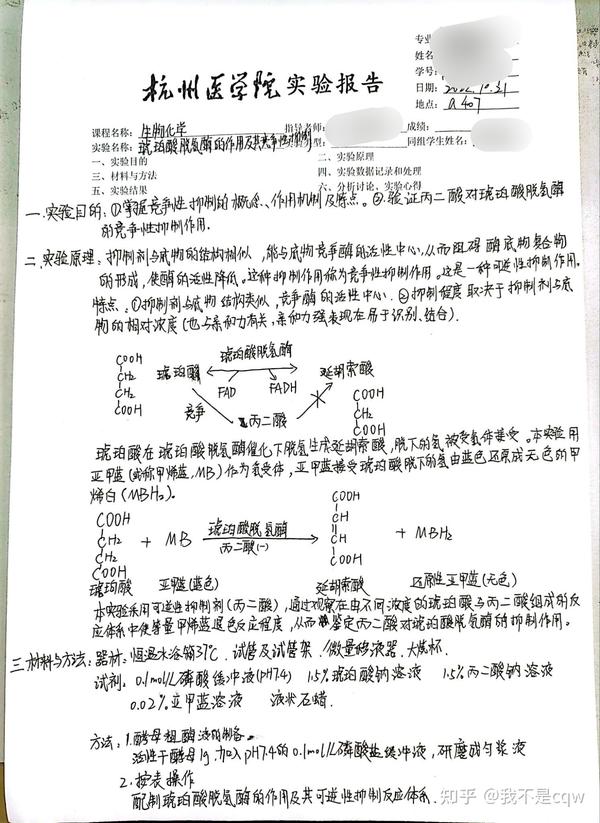 专业
姓名
学号:
杭州医学院 实验报告
日期: 10.31
地点: a407
课程名称: 生物化学 指导老师: 成绩:
实验名称: 琥珀酸脱氢酶的作用及其竞争性抑制 实验类型: 同组学生姓名:
一、实验目的 二、实验原理
三、材料与方法 四、实验数据记录和处理
五、实验结果 六、分析讨论、实验心得
一.实验目的:①掌握竞争性抑制的概念、作用机制及特点。②验证丙二酸对琥珀酸脱氢酶
的竞争性抑制作用.
二.实验原理:抑制剂与底物的结构相似,能与底物竞争酶的活性中心,从而阻碍酶底物复合物
的形成,使酶的活性降低。这种抑制作用称为竞争性抑制作用。这是一种可逆性抑制作用。
特点.①抑制剂与底物结构类似,竞争酶的活性中心.②抑制程度取决于抑制剂与底
物的相对浓度(也与亲和力有关,亲和力强表现在易于识别、结合).
琥珀酸脱氢酶
COOH
CH2
CH2
COOH
琥珀酸
FAD
FADH
延胡索酸
竞争
丙二酸
COOH
CH
CH
COOH
琥珀酸在琥珀酸脱氢酶催化下脱氢生成延胡索酸,脱下的氢被受氢体接受。本实验用
亚甲蓝(或称甲烯蓝,MB)作为氢受体,亚甲蓝接受琥珀酸脱下的氢由蓝色还原成无色的甲
烯白(MBH2)。
COOH
CH2
CH2
COOH
+ MB
琥珀酸脱氢酶
丙二酸(-)
COOH
CH
CH
COOH
+ MBH2
琥珀酸 亚甲蓝(蓝色) 延胡索酸 还原性亚甲蓝(无色)
本实验采用可逆性抑制剂(丙二酸),通过观察在由不同浓度的琥珀酸与丙二酸组成的反
应体系中使等量甲烯蓝退色反应程度,从而鉴定丙二酸对琥珀酸脱氢酶的抑制作用。
三.材料与方法:器材:恒温水浴箱37℃.试管及试管架.微量移液器.大烧杯.
试剂.0.1mol/L磷酸缓冲液(pH7.4) 1.5%琥珀酸钠溶液 1.5%丙二酸钠溶液
0.02%亚甲蓝溶液 液状石蜡.
方法:1.酵母粗酶液的制备.
活性干酵母1g.加入pH7.4的0.1mol/L磷酸盐缓冲液,研磨成匀浆液
2.按表操作
配制琥珀酸脱氢酶的作用及其可逆性抑制反应体系.
知乎 @我不是cqw